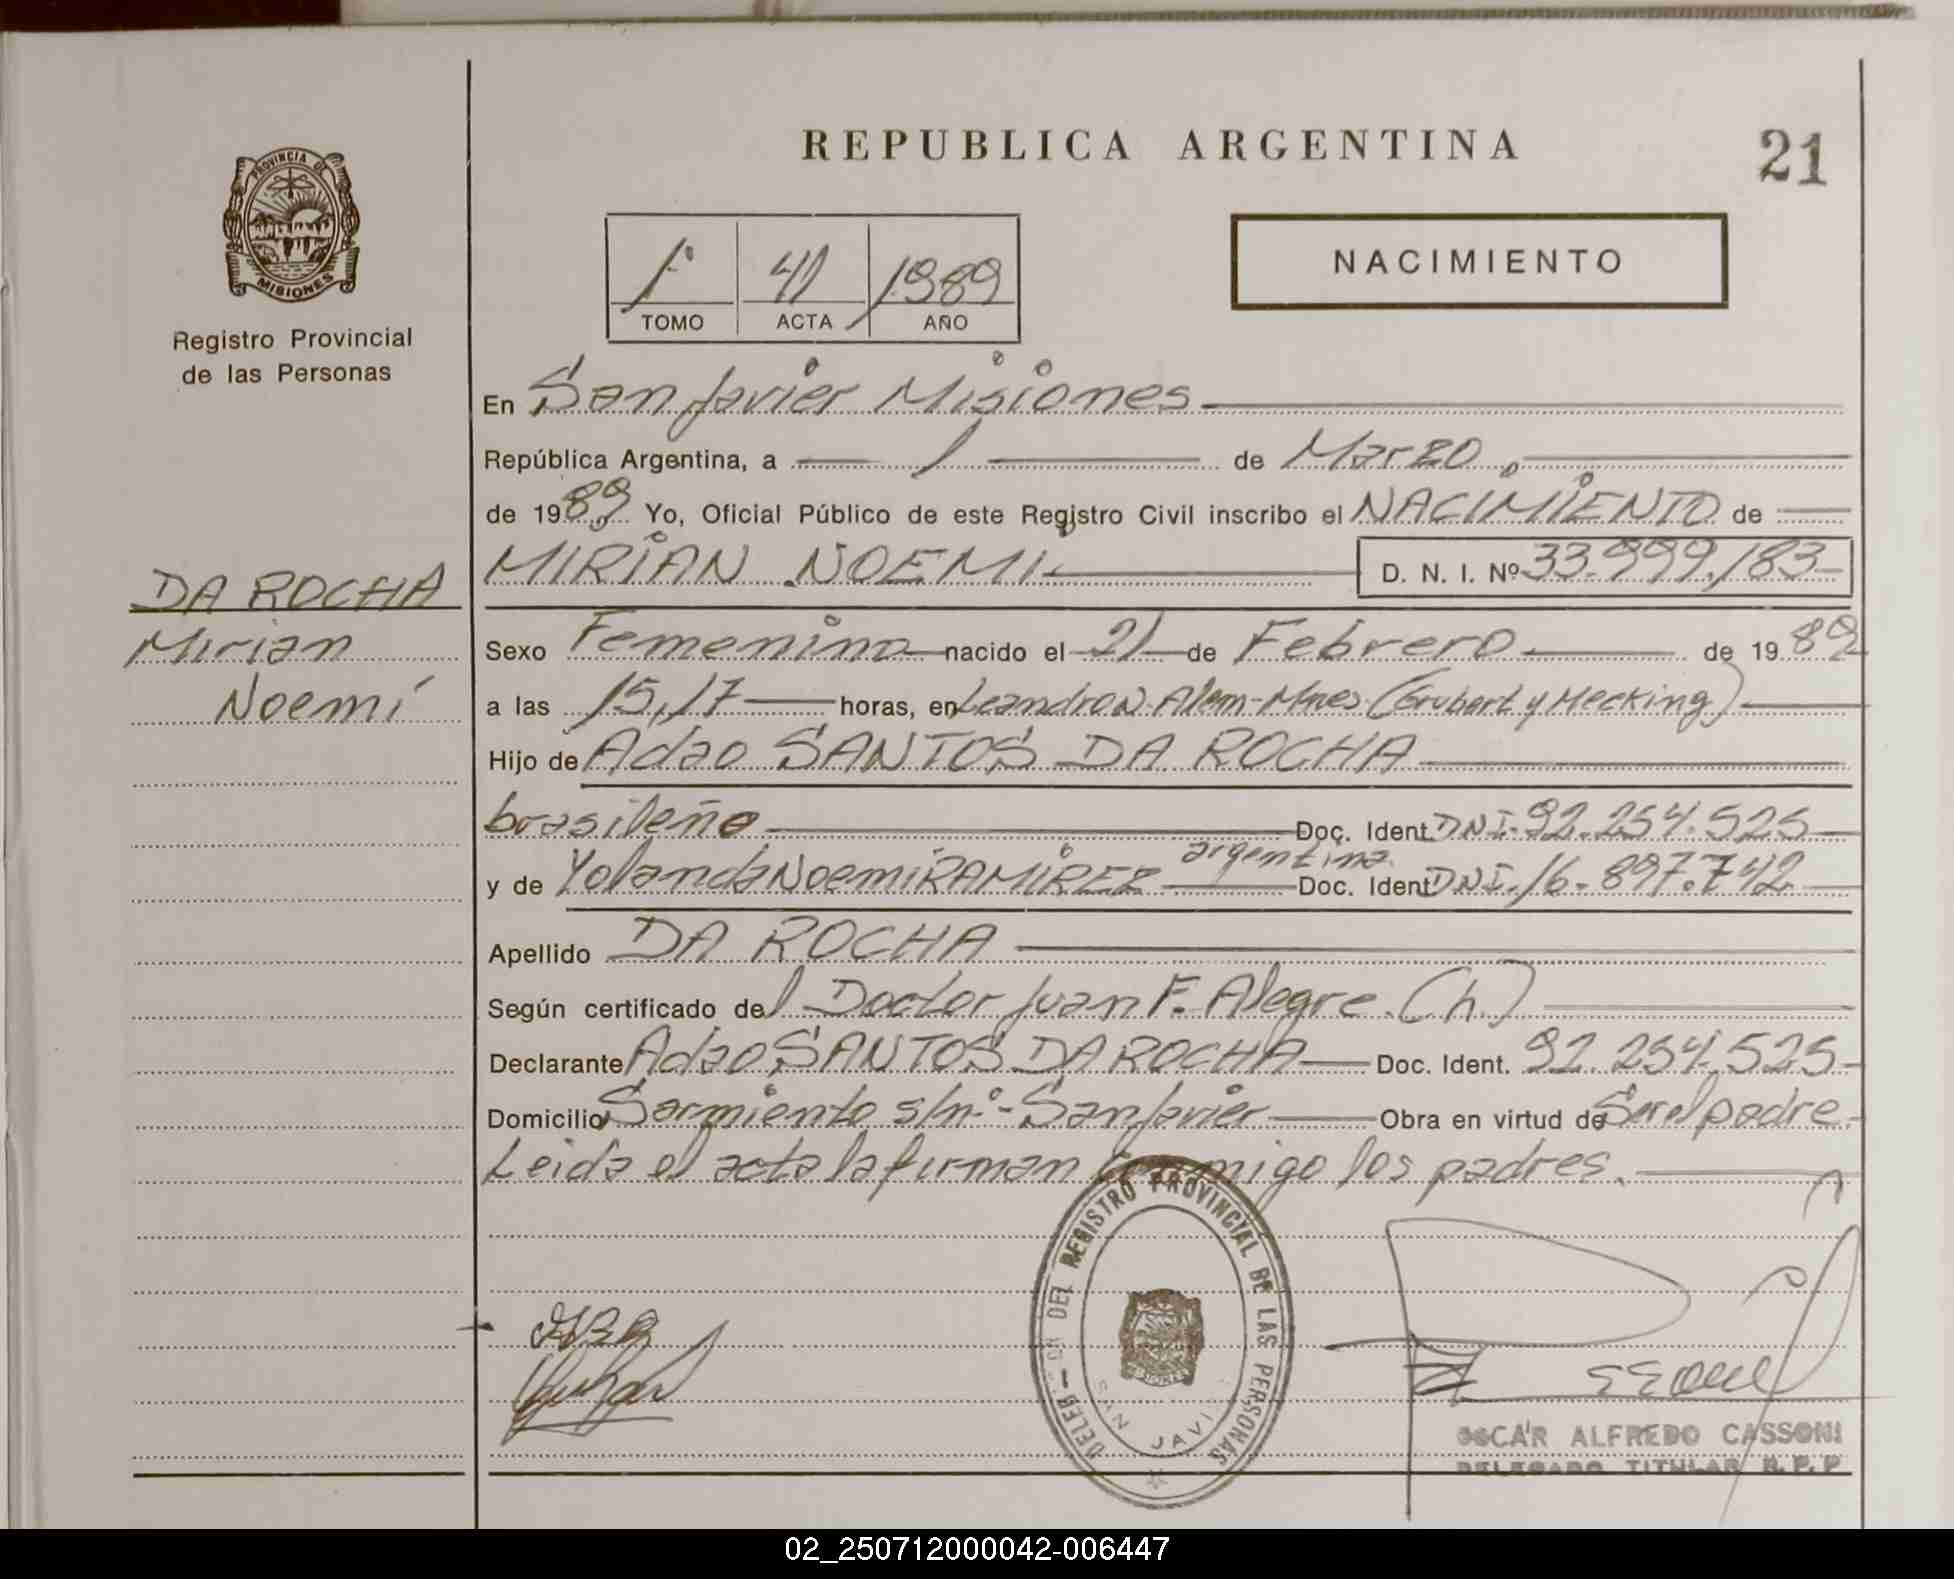 REPUBLICA ARGENTINA
21
PROVINCIA DE
MISIONES
Registro Provincial
de las Personas
1° 41 1989
TOMO ACTA AÑO
NACIMIENTO
En San Javier Misiones
República Argentina, a 1 de Marzo
de 1989 Yo, Oficial Público de este Registro Civil inscribo el NACIMIENTO de
MIRIAN NOEMI D. N. I. Nº 33.999.183
DA ROCHA
Mirian
Noemí
Sexo Femenino nacido el 21 de Febrero de 1989
a las 15,17 horas, en Leandro N. Alem-Mnes (Grubert y Mecking)
Hijo de Adao SANTOS DA ROCHA
brasileño Doc. Ident. DNI-92.254.525
y de Yolanda Noemi RAMIREZ argentina Doc. Ident. DNI.16.897.742
Apellido DA ROCHA
Según certificado del Doctor Juan F. Alegre (h.)
Declarante Adao SANTOS DA ROCHA Doc. Ident. 92.254.525
Domicilio Sarmiento s/nº- San Javier Obra en virtud de Ser el padre.
Leida el acta la firman conmigo los padres.
DEL REGISTRO PROVINCIAL DE LAS PERSONAS
OSCAR ALFREDO CASSONI
DELEGADO TITULAR R.P.P
02_250712000042-006447